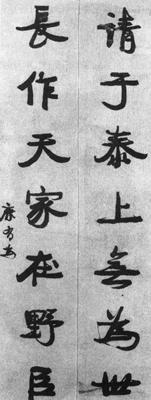 請于泰上無為世
長作天家在野臣
康有為